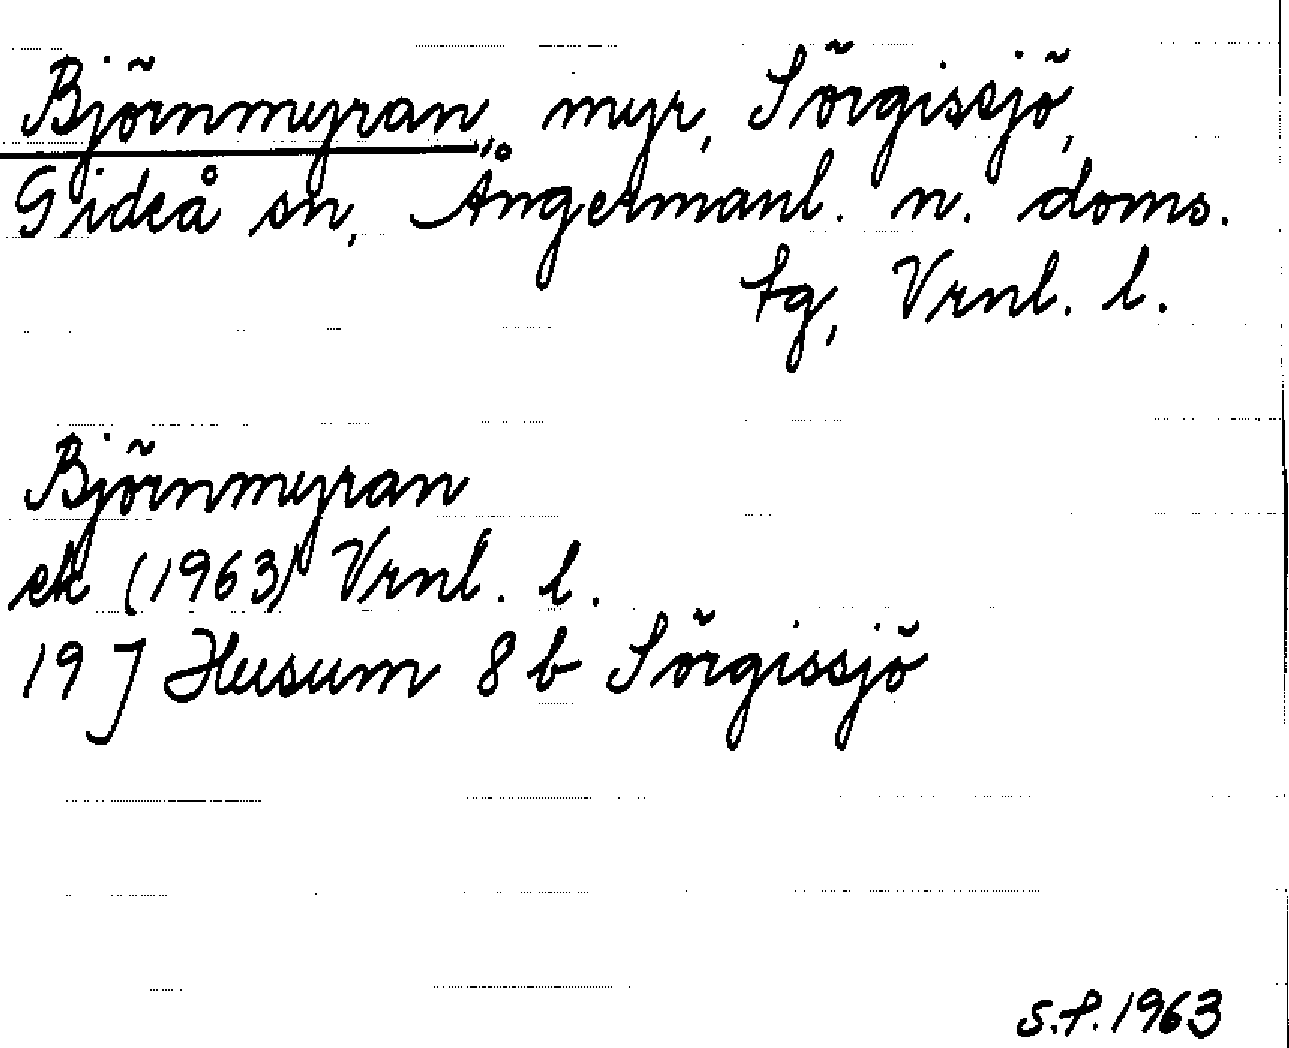 Björnmyran, myr, Sörgissjö,
Gideå sn, Ångermanl. n. doms.
tg, Vrnl. l.
Björnmyran
ek (1963) Vrnl. l.
19 J Husum 8 b Sörgissjö
S.P. 1963